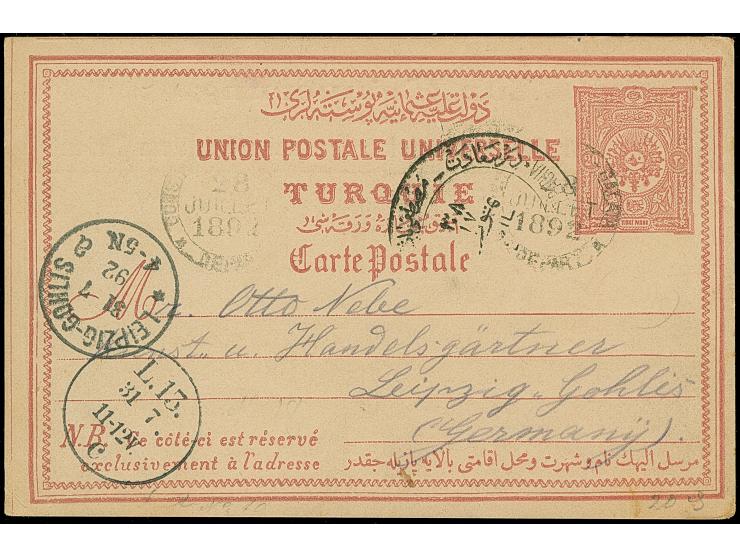 دولت عليه عثمانيه پوسته لرى
UNION POSTALE UNIVERSELLE
TURQUIE
Carte Postale
28
JUILLET
1892
JUILLET
1892
DEPART
LEIPZIG-GOHLIS
31 7
92
4-5N
M r. Otto Nebe
Kunst- u. Handelsgärtner
Leipzig-Gohlis
(Germany).
L. 13.
31 7.
11-12V.
C
N.B. Ce côté-ci est réservé
exclusivement à l'adresse
مرسل اليهك نام و شهرت و محل اقامتى بالايه يازيله جقدر